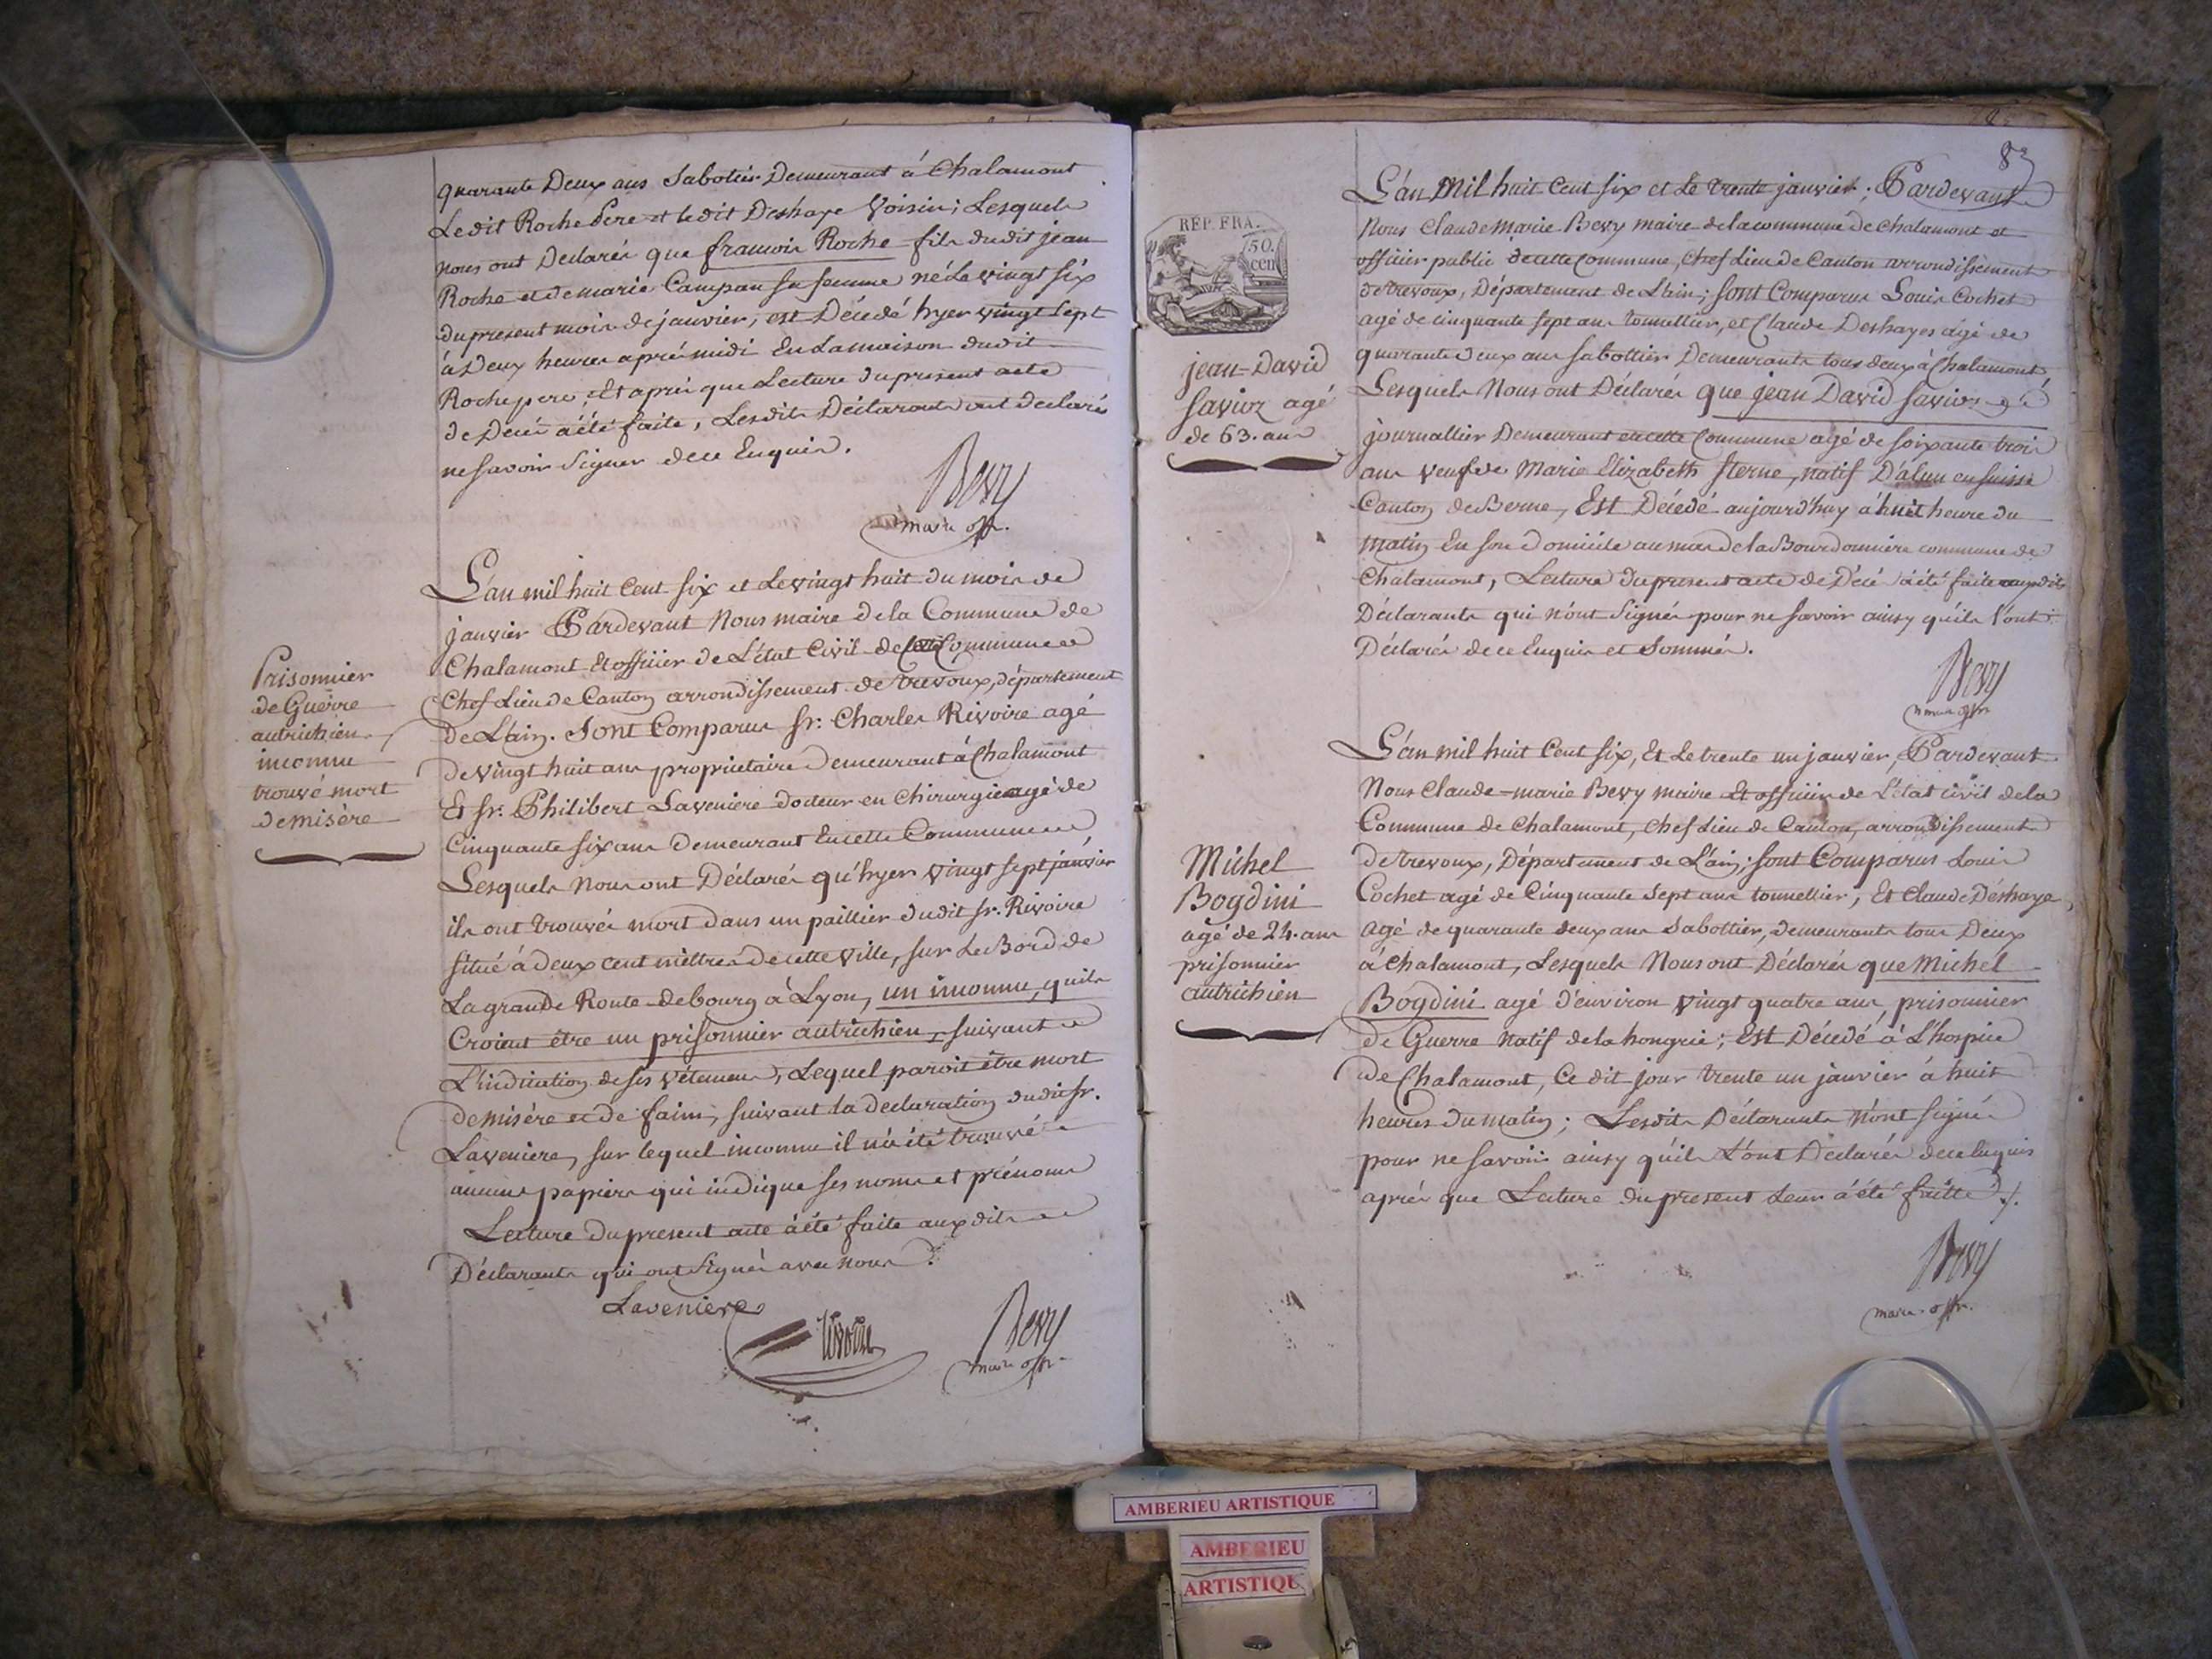 quarante Deux ans Sabotier Demeurant á Chalamont
Ledit Roche Pere et ledit Deshaye Voisin; Lesquels
nous ont Declarés que francois Roche fils dudit jean
Roche et de marie Campan sa femme né Le vingt six
du present mois de janvier, est Décédé hyer vingt sept
á Deux heures aprés midi En La maison dudit
Roche pere, Et aprés que Lecture du present acte
de Decés a été faite, Lesdits Déclarants ont declarés
ne Savoir Signer de ce Enquis.
Bevy
maire offr.
L'an mil huit Cent Six et Le vingt huit du mois de
janvier Pardevant Nous maire de la Commune de
Chalamont Et officier de L'état Civil de cette Commune
Chef Lieu de Canton arrondissement de trevoux, département
de L'ain. Sont Comparus Sr. Charles Rivoire agé
de vingt huit ans propriétaire Demeurant á Chalamont
Et Sr. Philibert Laveniere docteur en Chirurgie agé de
Cinquante six ans Demeurant En cette Commune
Lesquels Nous ont Déclarés qu'hyer vingt sept janvier
ils ont trouvés mort dans un paillier dudit Sr. Rivoire
situé á Deux cent mêttres de cette ville, sur Le Bord de
La grande Route de bourg á Lyon, un inconnu, quils
Croient être un prisonnier autrichien, suivant
L'indication de ses vétemens, Lequel paroit être mort
de misére et de faim, suivant la declaration dudit Sr.
Laveniere, sur lequel inconnu il n'á été trouvé
aucuns papiers qui indique ses noms et prénoms
Lecture du present acte á été faite auxdits
Déclarants qui ont Signés avec nous.
Laveniere
Rivoire
Bevy
maire offr.
Prisonnier
de Guerre
autrichien
inconnu
trouvé mort
de misère
83
REP. FRA.
50.
cen
jean=David
Savioz agé
de 63. ans
L'an Mil huit Cent six et Le trente janvier; Pardevant
Nous Claude Marie Bevy maire de la commune de Chalamont et
officier public de cette Commune, Chef Lieu de Canton arrondissement
de trevoux, Département de L'ain; sont Comparus Louis Cochet
agé de cinquante sept ans tonnellier, et Claude Deshayes agé de
quarante deux ans sabottier Demeurants tous deux á Chalamont
Lesquels Nous ont Déclarés que jean David Savioz
journallier Demeurant en cette Commune agé de soixante trois
ans veuf de Marie Elizabeth Sterne, natif D'alun en suisse
Canton de Berne, Est Décédé aujourd'huy á huit heure du
matin En son domicile au mas de la Bourdonniere commune de
Chalamont, Lecture du present acte de Décé á été faite auxdits
Déclarants qui n'ont Signés pour ne savoir ainsy qu'ils l'ont
Déclarés de ce Enquis et Sommés.
Bevy
maire offr.
Michel
Bogdini
agé de 24. ans
prisonnier
autrichien
L'an mil huit Cent six, Et Le trente un janvier, Pardevant
Nous Claude-marie Bevy maire Et officier de L'état civil de la
Commune de Chalamont, chef Lieu de Canton, arrondissement
de trevoux, Département de L'ain; sont Comparus Louis
Cochet agé de Cinquante sept ans tonnellier, Et Claude Déshaye,
agé de quarante deux ans Sabottier, demeurants tous Deux
á Chalamont, Lesquels Nous ont Déclarés que Michel
Bogdini agé d'environ vingt quatre ans, prisonnier
de Guerre Natif de la hongrie; Est Décedé á L'hospice
de Chalamont, Ce dit jour trente un janvier á huit
heures du matin; Lesdits Déclarants N'ont signés
pour ne savoir ainsy quils L'ont Declarés de ce Enquis
aprés que Lecture du present Leur á été faitte ./.
Bevy
maire offr.
AMBERIEU ARTISTIQUE
AMBERIEU
ARTISTIQU